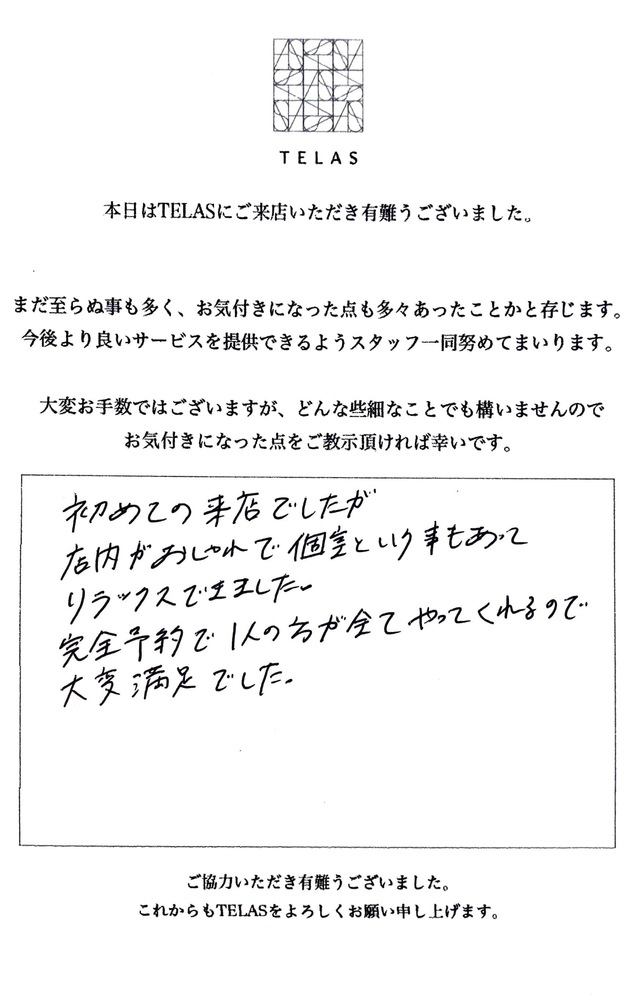 TELAS
本日はTELASにご来店いただき有難うございました。
まだ至らぬ事も多く、お気付きになった点も多々あったことかと存じます。
今後より良いサービスを提供できるようスタッフ一同努めてまいります。
大変お手数ではございますが、どんな些細なことでも構いませんので
お気付きになった点をご教示頂ければ幸いです。
初めての来店でしたが
店内がおしゃれで個室という事もあって
リラックスできました。
完全予約で1人の方が全てやってくれるので
大変満足でした。
ご協力いただき有難うございました。
これからもTELASをよろしくお願い申し上げます。